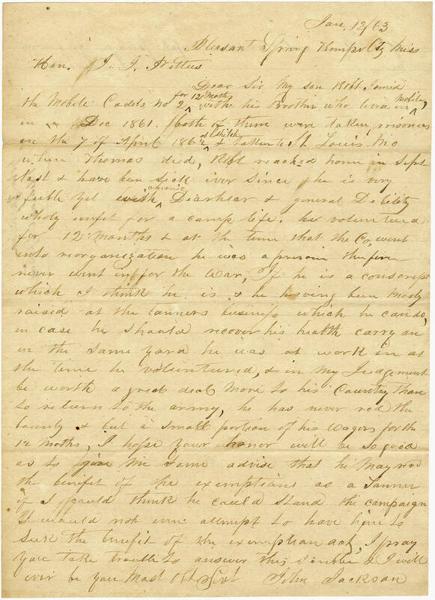 Jan. 12/63
Pleasant Spring Kemper Cty Miss
Hon. J. J. Pettus
Dear Sir My son Robt. joined
for 12 Months
the Mobile Cadets No 2 with his Brother who lives in Mobile,
in Dec 1861. both of them were taken prisoners
on the 7 of April 1862 at Shiloh & taken to St Louis, Mo
where Thomas died, Robt reached home in Sept
last & have been sick ever since, he is very
feeble yet with chronic Diarhear & general Debility
wholy unfit for a camp life. he volunteered
for 12 months & at the time that the Co, went
into reorganization he was a prisoner therefore
never went in for the War, If he is a conscript
which I think he is, & he having been mostly
raised at the tanners business which he can do,
in case he should recover his health carry on
in the same yard he was at work in at
the time he volunteered, & in my Judgement
be worth a great deal more to his Country than
to return to the army, he has never recd the
bounty & but a small portion of his wages for the
12 months, I hope your honor will be so good
as to give me some advise that he may
the benefit of the exemptions as a Tanner
if I could think he could stand the campaign
I would not attempt to have him to
sure the benefit of the exemption act, I pray
you take trouble to answer this Scribble & I will
ever be your Most Obt Svt John Jackson